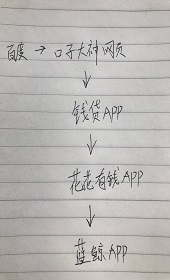 百度 → 口子大神网页
↓
钱贷APP
↓
花花有钱APP
↓
蓝鲸APP